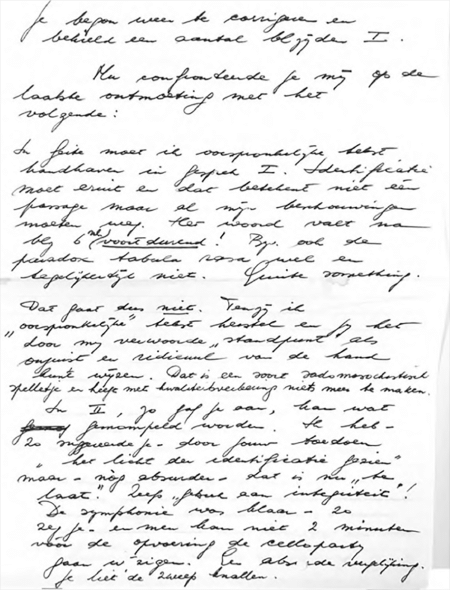 Je begon weer te corrigeren en
behield een aantal blzijden I.
Nu confronteerde je mij op de
laatste ontmoeting met het
volgende:
In feite moet ik oorspronkelijke tekst
handhaven in gesprek I. Identificatie
moet eruit en dat betekent niet een
passage maar al mijn beschouwingen
moeten weg. Het woord valt na
blz 6 voortdurend! Bv. ook de
paradox tabula rasa wel en
tegelijkertijd niet. Quite something.
Dat gaat dus niet. Tenzij ik
"oorspronkelijke" tekst herstel en jij het
door mij verwoorde "standpunt" als
onjuist en ridicuul van de hand
kunt wijzen. Dat is een soort sado masochistisch
spelletje en heeft met kwaliteitsverbetering niets meer te maken.
In II, zo gaf je aan, kan wat
gemompeld worden. Ik heb -
zo suggereerde je - door jouw toedoen
"het licht der identificatie gezien"
maar - nog absurder - dat is nu "te
laat". "gebrek aan integriteit"!
De symphonie was klaar - zo
zei je - en men kan niet 2 minuten
voor de opvoering de cellopartij
gaan wijzigen. Een absurde vergelijking.
Je liet de zweep knallen.